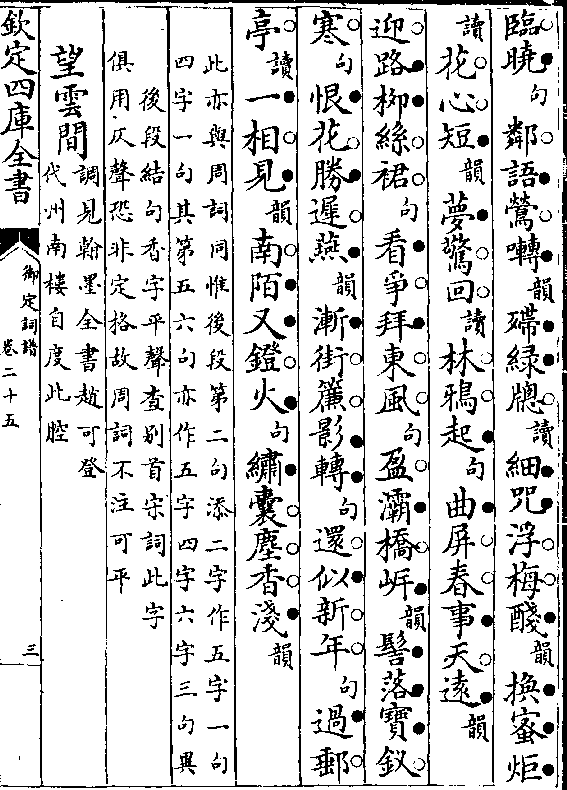 臨曉句鄰語鶯囀韻殢綠牕讀細咒浮梅醆韻換蜜炬
讀花心短韻夢驚回讀林鴉起句曲屏春事天遠韻
迎路柳絲裙句看爭拜東風句盈灞橋岸韻髻落寶釵
寒句恨花勝遲燕韻漸街簾影轉句還似新年句過郵
亭讀一相見韻南陌又鐙火句繡囊塵香淺韻
此亦與周詞同惟後段第二句添二字作五字一句
四字一句其第五六句亦作五字四字六字三句異
後段結句香字平聲查别首宋詞此字
俱用仄聲恐非定格故周詞不注可平
望雲間
調見翰墨全書趙可登
代州南樓自度此腔
欽定四庫全書
御定詞譜
卷二十五
三